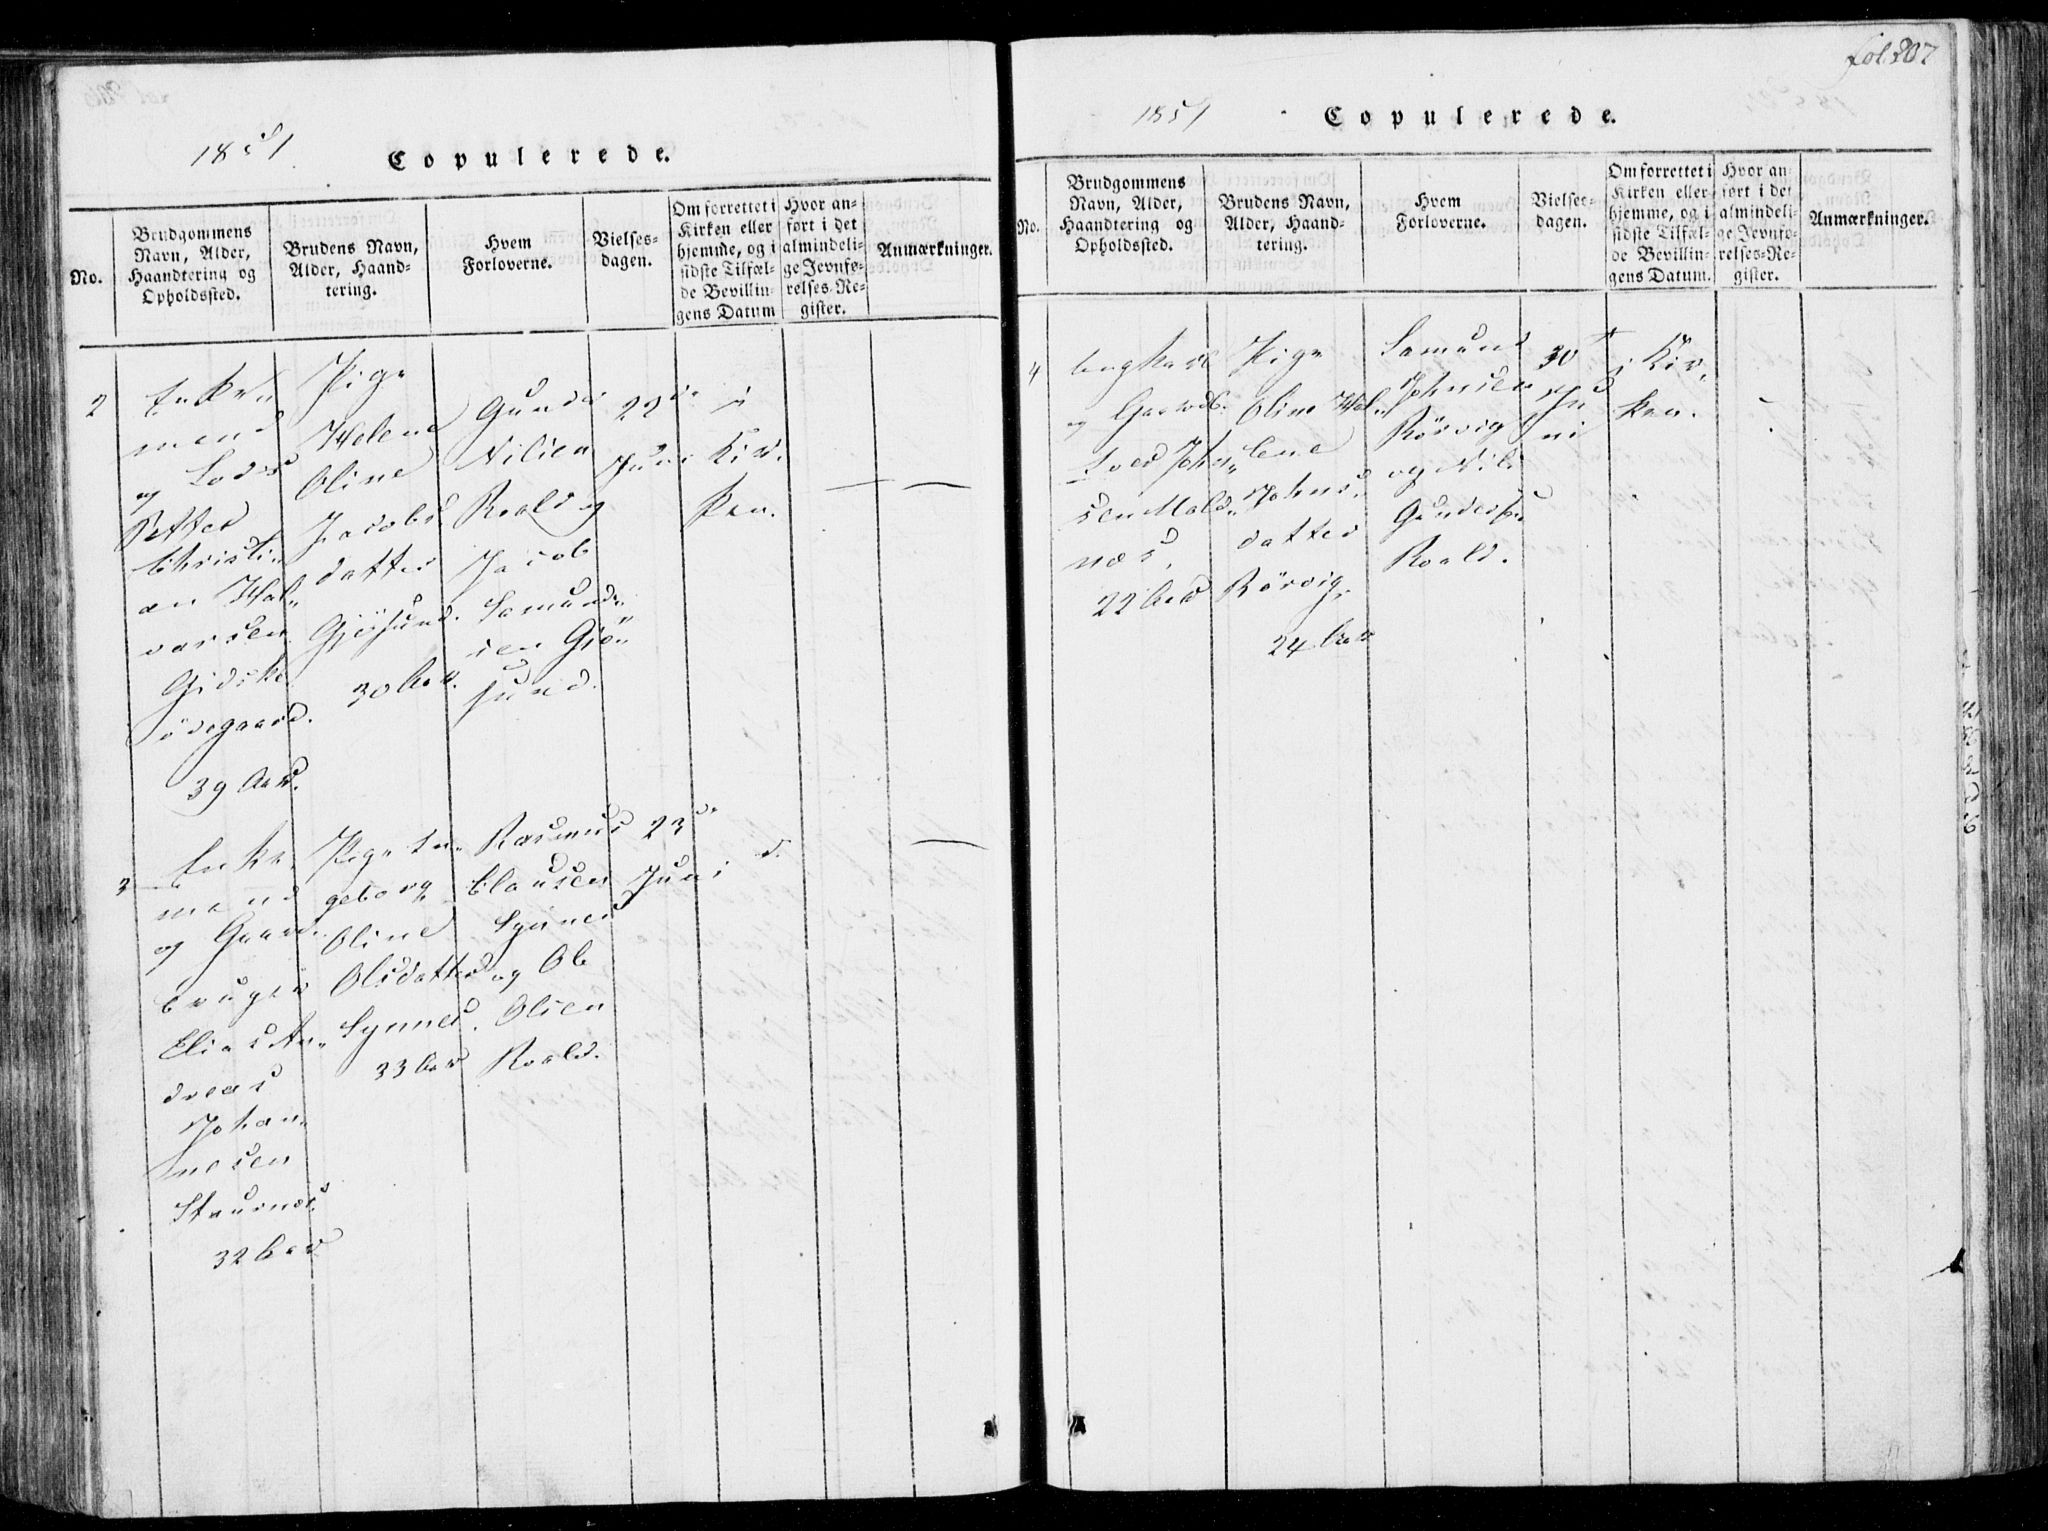 1851
Copulerede.
No.
Brudgommens
Navn, Alder,
Haandtering og
Opholdssted.
Brudens Navn,
Alder, Haand-
tering.
Hvem
Forloverne.
Vielses-
dagen.
Om forrettet i
Kirken eller
hjemme, og i
sidste Tilfæl-
de Bevillin-
gens Datum
Hvor an-
ført i det
almindeli-
ge Jevnfø-
relses-Re-
gister.
Anmærkninger.
2
Enke
mand
og Lods
Petter
Christi„
an Hal„
varsen
Gidske
ödegaard.
39 Aar.
Pige
Helene
Oline
Jacobs
datter
Gjösund.
30 Aar.
Gunder
Nilsen
Roald og
Jacob
Samund„
sen Gjö„
sund.
22de
Juni
i
Kir„
ken.
—
—
3
Enke„
mand
og Gaard„
bruger
Elias An„
dreas
Johan„
nesen
Stavrnes
32 Aar
Pige In„
geborg
Oline
Olsdatter
Synnes.
33 Aar
Rasmus
Clausen
Synnes
og Ole
Olsen
Roald.
23de
Juni
d.
—
fol 207
1851
Copulerede.
No.
Brudgommens
Navn, Alder,
Haandtering og
Opholdssted.
Brudens Navn,
Alder, Haand-
tering.
Hvem
Forloverne.
Vielses-
dagen.
Om forrettet i
Kirken eller
hjemme, og i
sidste Tilfæl-
de Bevillin-
gens Datum.
Hvor an-
ført i det
almindeli-
ge Jevnfø-
relses-Re-
gister.
Anmærkninger.
4
Ungkarl
og Gaardb.
Iver John„
sen Mold„
næs.
22 Aar
Pige
Oline Hel„
lene
Johns„
datter
Rörvig
24 Aar
Samund
Johnsen
Rörvig
og Nils
Gundersen
Roald.
30t
Ju
ni
i Kir„
ken.